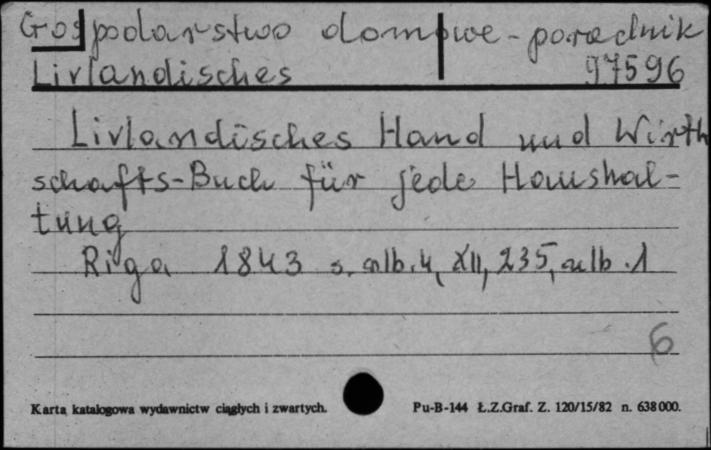 Gospodarstwo domowe - poradnik
Livlandisches 97596
Livlandisches Hand und Wirth
schafts-Buch für jede Haushal-
tung
Riga 1843 s. nlb. 4, XII, 235, nlb. 1
6
Karta katalogowa wydawnictw ciągłych i zwartych. Pu-B-144 Ł.Z.Graf. Z. 120/15/82 n. 638000.